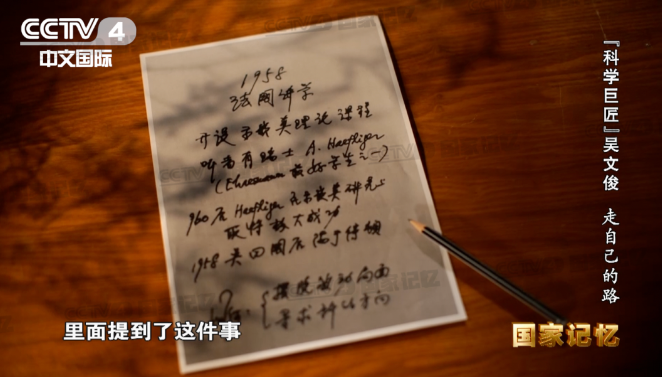 CCTV 4
中文国际
1958
法国讲学
开设示嵌类理论课程
听者有瑞士 A. Haefliger
(Ehresmann 最好学生之一)
960后 Haefliger 在示嵌类研究上
取得极大成功
1958 吴回国后陷于停顿
摆脱被动局面
寻求新的方向
『科学巨匠』吴文俊 走自己的路
里面提到了这件事
国家记忆